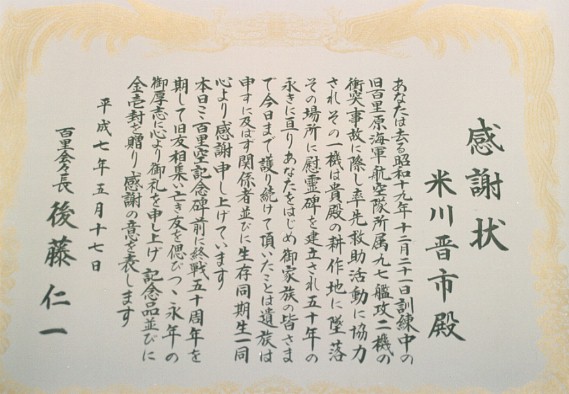 感謝状
米川晋市殿
あなたは去る昭和十九年十二月二十一日訓練中の
旧百里原海軍航空隊所属九七艦攻二機の
衝突事故に際し率先救助活動に協力
されその一機は貴殿の耕作地に墜落
その場所に慰霊碑を建立され五十年の
永きに亘りあなたをはじめ御家族の皆さま
で今日まで護り続けて頂いたことは遺族は
申すに及ばず関係者並びに生存同期生一同
心より感謝申し上げています
本日ここ百里空記念碑前に終戦五十周年を
期して旧友相集い亡き友を偲びつゝ永年の
御厚志に心より御礼を申し上げ 記念品並びに
金壱封を贈り感謝の意を表します
平成七年五月十七日
百里会々長 後藤仁一